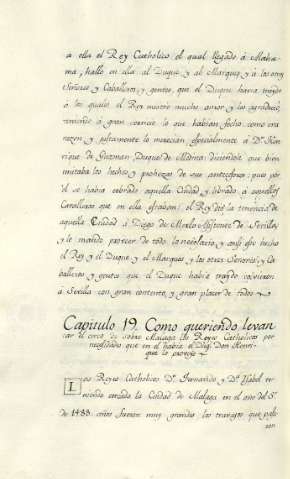 a ella el Rey Catholico el qual llegado á Alha-
ma, halló en ella al Duque y al Marques y á los otros
Señores y Caballeros, y gentes, que el Duque havia traydo
á los quales el Rey mostró mucho amor y les agradeció,
teniendo á gran servicio lo que habian fecho como era
razon y justamente lo merecian especialmente á Dn. Hen-
rique de Guzman Duque de Medina diciendole que bien
imitaba los hechos y prohezas de sus antecesores: pues por
él se habia cobrado aquella Ciudad y librado á aquellos
Caballeros que en ella estaban: el Rey dió la tenencia de
aquella Ciudad á Diego de Merlo Asistente de Sevilla,
y le mandó proveer de todo lo necesario, y esto asi hecho
el Rey y el Duque y el Marques y los otros Señores y Ca-
balleros y gentes que el Duque habia traydo volvieron
á Sevilla con gran contento, y gran placer de todos
Capitulo 19. Como queriendo levan
tar el cerco de sobre Malaga los Reyes Catholicos por
necesidad que en el habia el Duque Don Henri-
que lo proveyó
Los Reyes Catholicos Dn. Fernando y Da. Isabel te-
niendo cercada la Ciudad de Malaga en el año del Sr.
de 1488. años fueron muy grandes los trabajos que pade-
cen